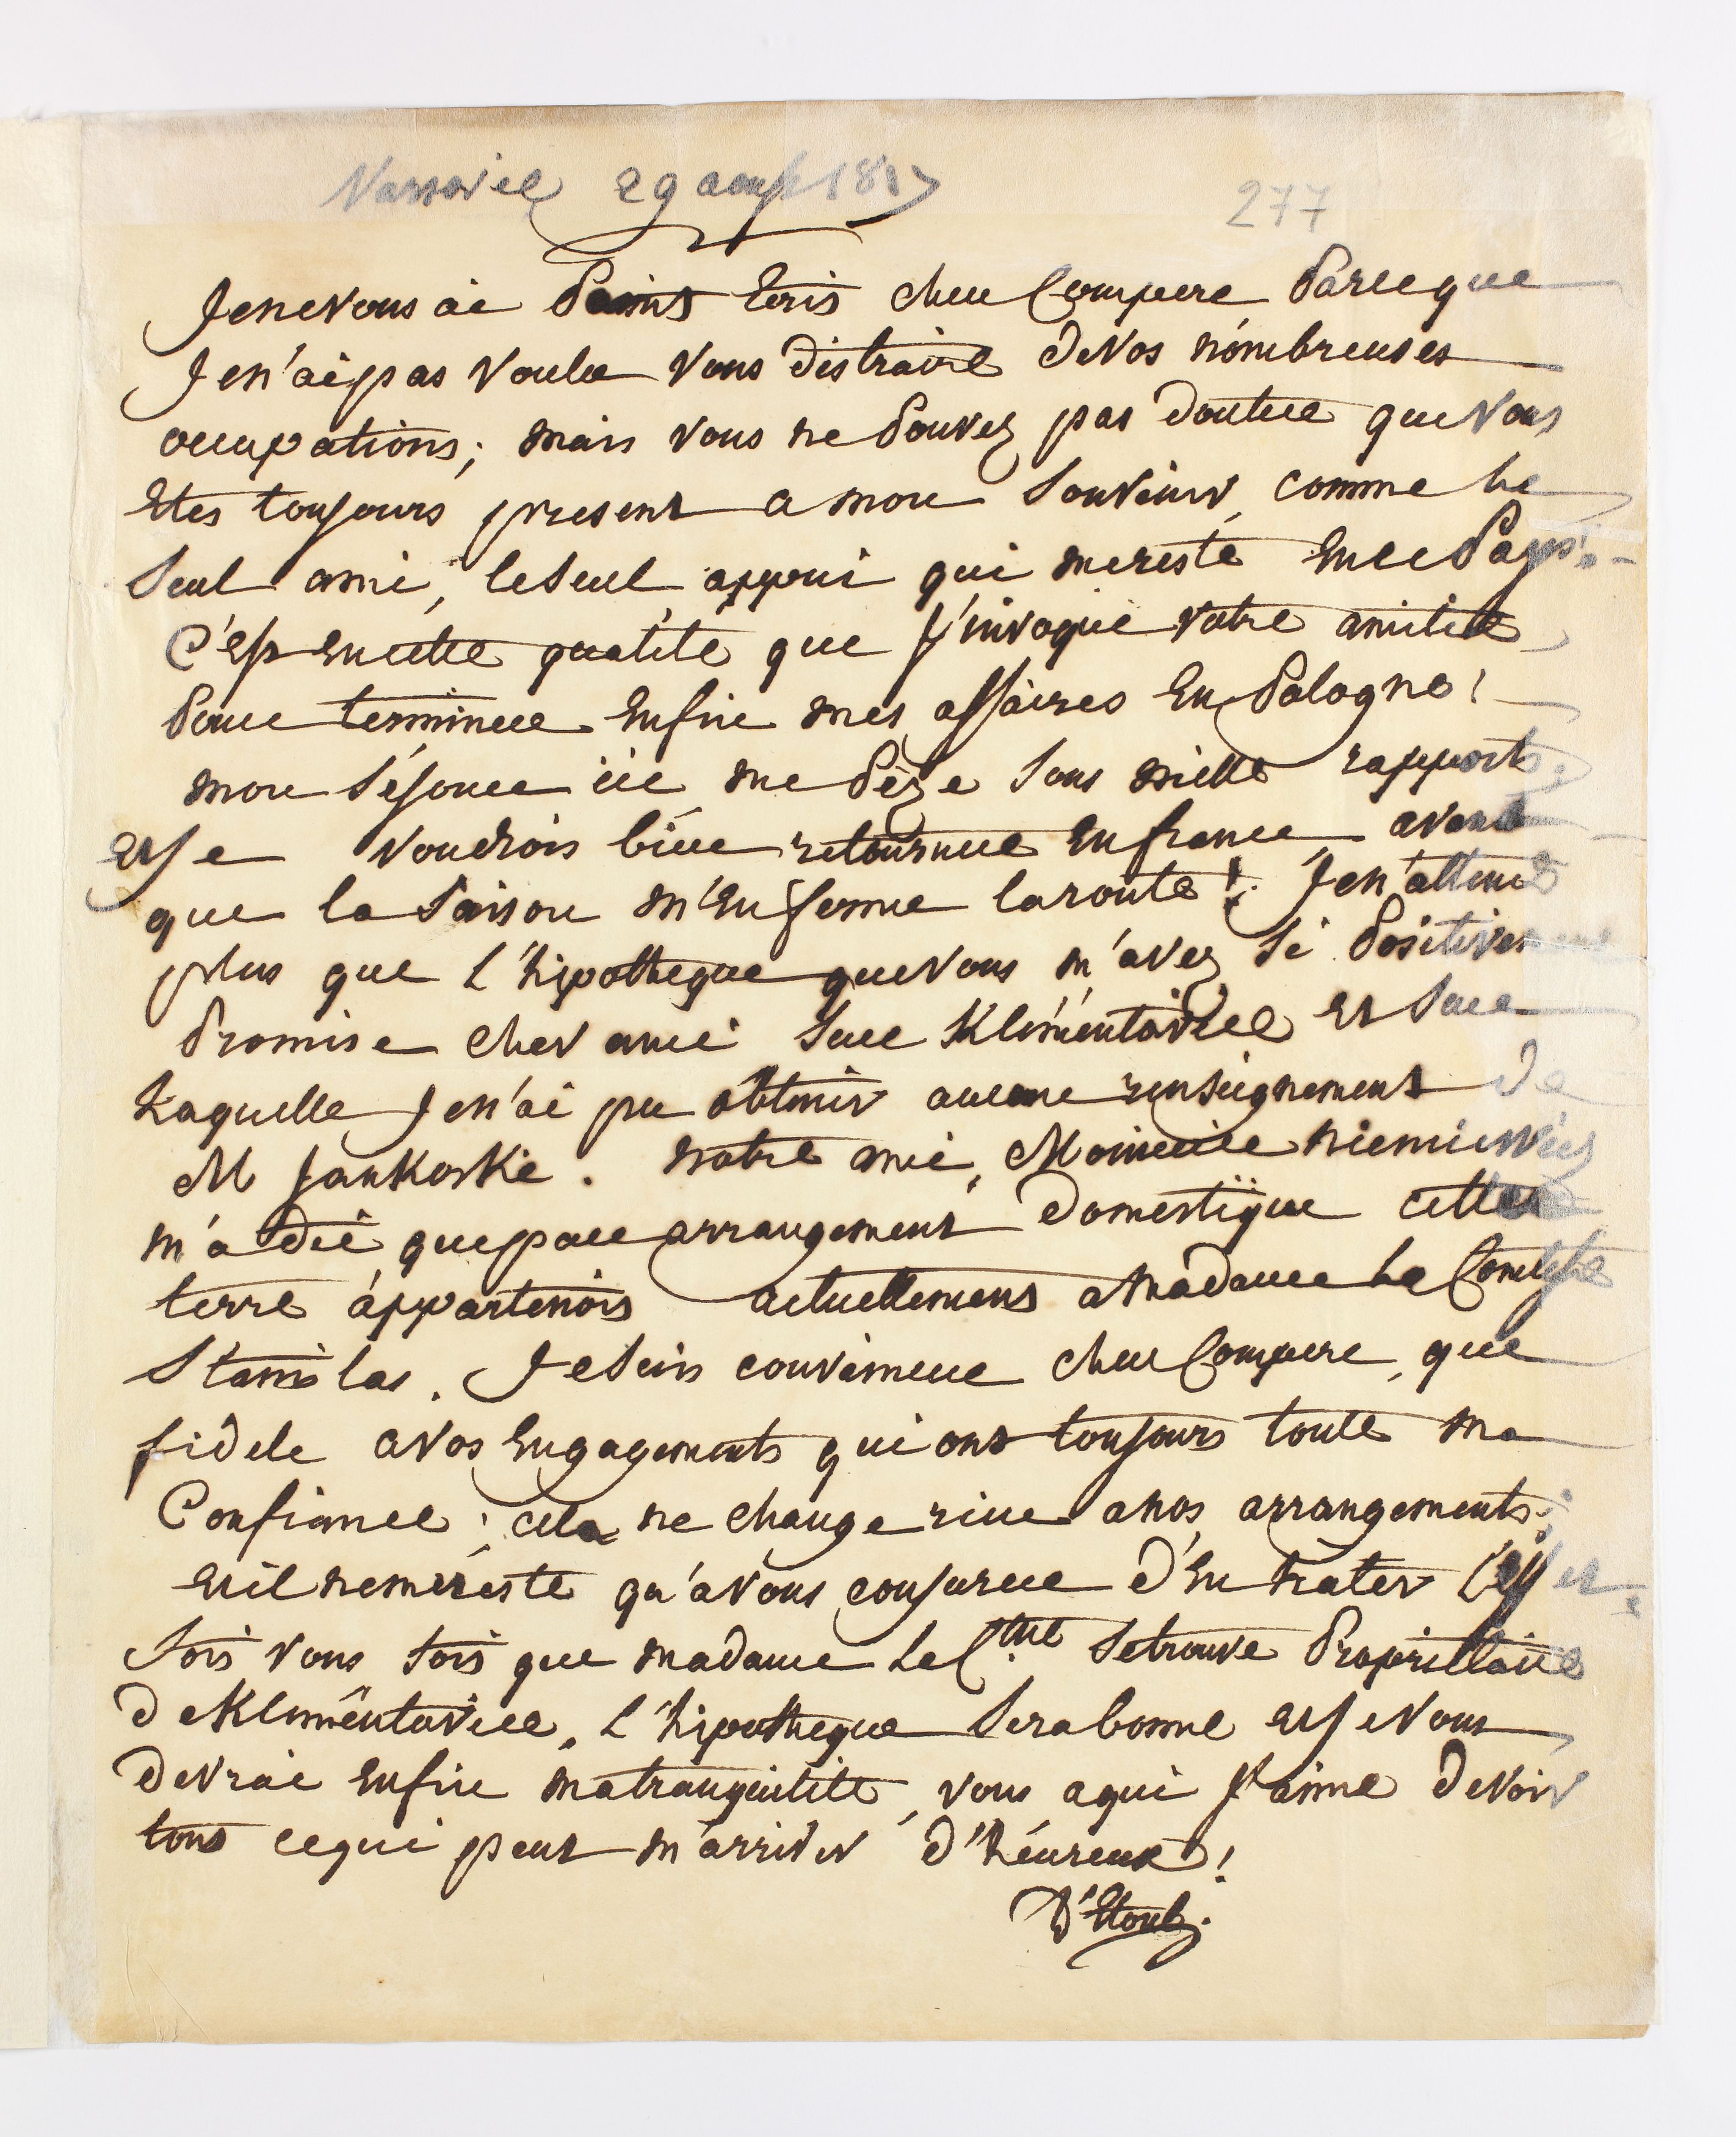 Varsovie 29 aoust 1817
277
Je ne vous ai point ecris cher Compere parceque
Je n'ai pas voulu vous distraire de vos nombreuses
occupations; mais vous ne pouvez pas douter que vous
etes toujours present a mon souvenir, comme le
seul ami, le seul appui qui me reste en ce pays
C'est en cette qualité que j'invoque votre amitié
pour terminer enfin mes affaires en Pologne!
mon séjour ici me pèze sous mille rapports
et je voudrois bien retourner en france avant
que la saison m'en ferme la route! Je n'attend
plus que l'hipotheque que vous m'avez si positivement
promise cher ami sur Klémentovice et sur
Laquelle Je n'ai pu obtenir aucune renseignement de
M Jankoski. notre ami, Monieur niemcewicz
m'a dit que par arrangement domestique cette
terre appartenois actuellement a Madame La Comtesse
Stanislas. Je suis convaincu cher Compere, que
fidele a vos engagements qui ont toujours toute ma
Confiance; cela ne change rien a nos arrangements;
et il ne me reste qu'a vous conjurer d'en hater l'effet
Sois vous sois que madame La C.tesse se trouve Proprietaire
de Klementovice, l'hipotheque sera bonne et je vous
devrai enfin ma tranquilité, vous a qui J'aime devoir
tous ce qui peut m'arriver d'héureux!
D'Stoub.